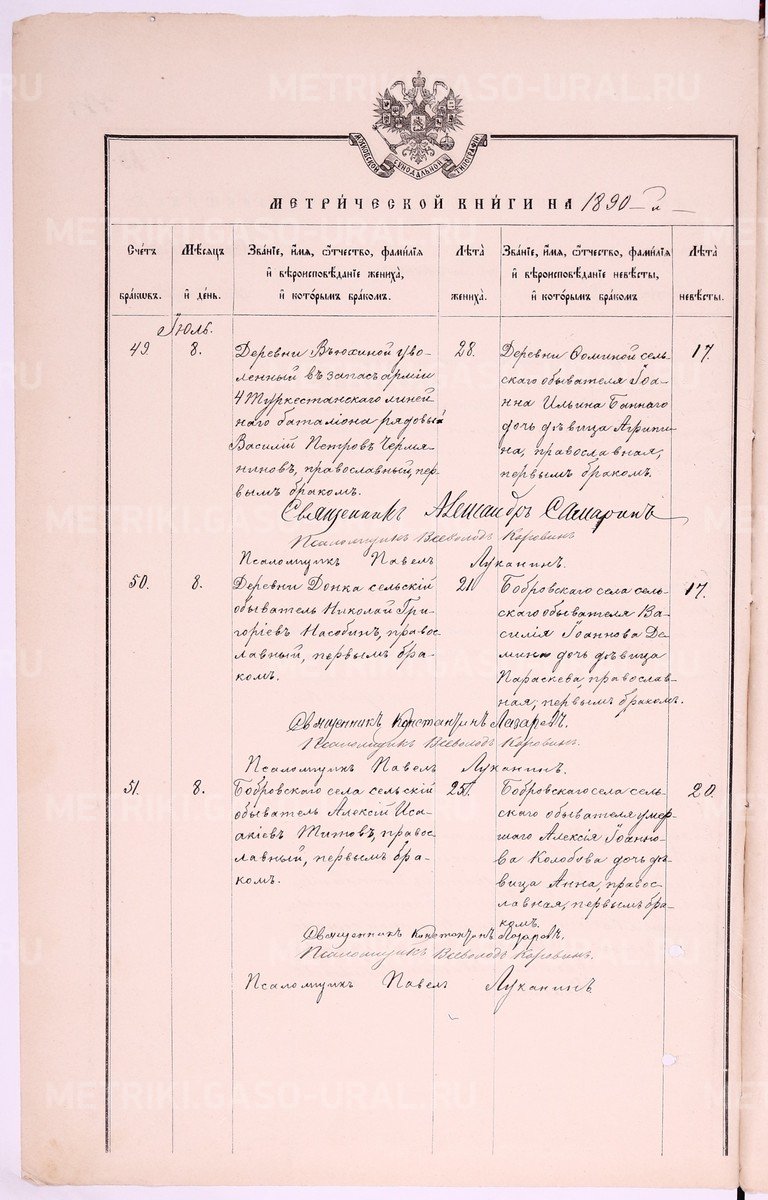 METRIKI.GASO-URAL.RU
МОСКОВСКОЙ СѴНОДАЛЬНОЙ ТИПОГРАФІИ
МЕТРИ́ЧЕСКОЙ КНИ́ГИ НА 1890-й
Сче́тъ бра́кѡвъ.
Мѣ́сѧцъ и҆ де́нь.
Зва́нїе, и҆́мѧ, ѻ҆́тчество, фами́лїѧ и҆ вѣроисповѣ́данїе жениха̀, и҆ кото́рымъ бра́комъ.
Лѣ̑та жениха̀.
Зва́нїе, и҆́мѧ, ѻ҆́тчество, фами́лїѧ и҆ вѣроисповѣ́данїе невѣ́сты, и҆ кото́рымъ бра́комъ
Лѣ̑та невѣ́сты.
Іюль.
49.
8.
Деревни Вьюхиной уво-
ленный въ запасъ арміи
4 Туркестанскаго линей
наго баталіона рядовый
Василій Петровъ Чермя-
ниновъ, православный, пер-
вымъ бракомъ.
28.
Деревни Ѳоминой сель-
скаго обывателя Іоа-
нна Ильина Баннаго
дочь дѣвица Агрипи-
на, православная,
первымъ бракомъ.
17.
Священникъ Александръ Самаринъ
Псаломщикъ Всеволодъ Коровинъ
Псаломщикъ Павелъ Луканинъ.
50.
8.
Деревни Донка сельскій
обыватель Николай Гри-
горіевъ Насобинъ, правос
лавный, первымъ бра-
комъ.
21
Бобровскаго села сель-
скаго обывателя Ва-
силія Іоаннова Де-
мина дочь дѣвица
Параскева, православ-
ная, первымъ бракомъ.
17.
Священникъ Константинъ Лазаревъ.
Псаломщикъ Всеволодъ Коровинъ.
Псаломщикъ Павелъ Луканинъ.
51.
8.
Бобровскаго села сельскій
обыватель Алексій Иса-
акіевъ Титовъ, правос
лавный, первымъ бра-
комъ.
25.
Бобровскаго села сель-
скаго обывателя умер-
шаго Алексія Іоанно-
ва Колобова дочь дѣ-
вица Анна, правос-
лавная, первымъ бра-
комъ.
20.
Священникъ Константинъ Лазаревъ.
Псаломщикъ Всеволодъ Коровинъ.
Псаломщикъ Павелъ Луканинъ
METRIKI.GASO-URAL.RU